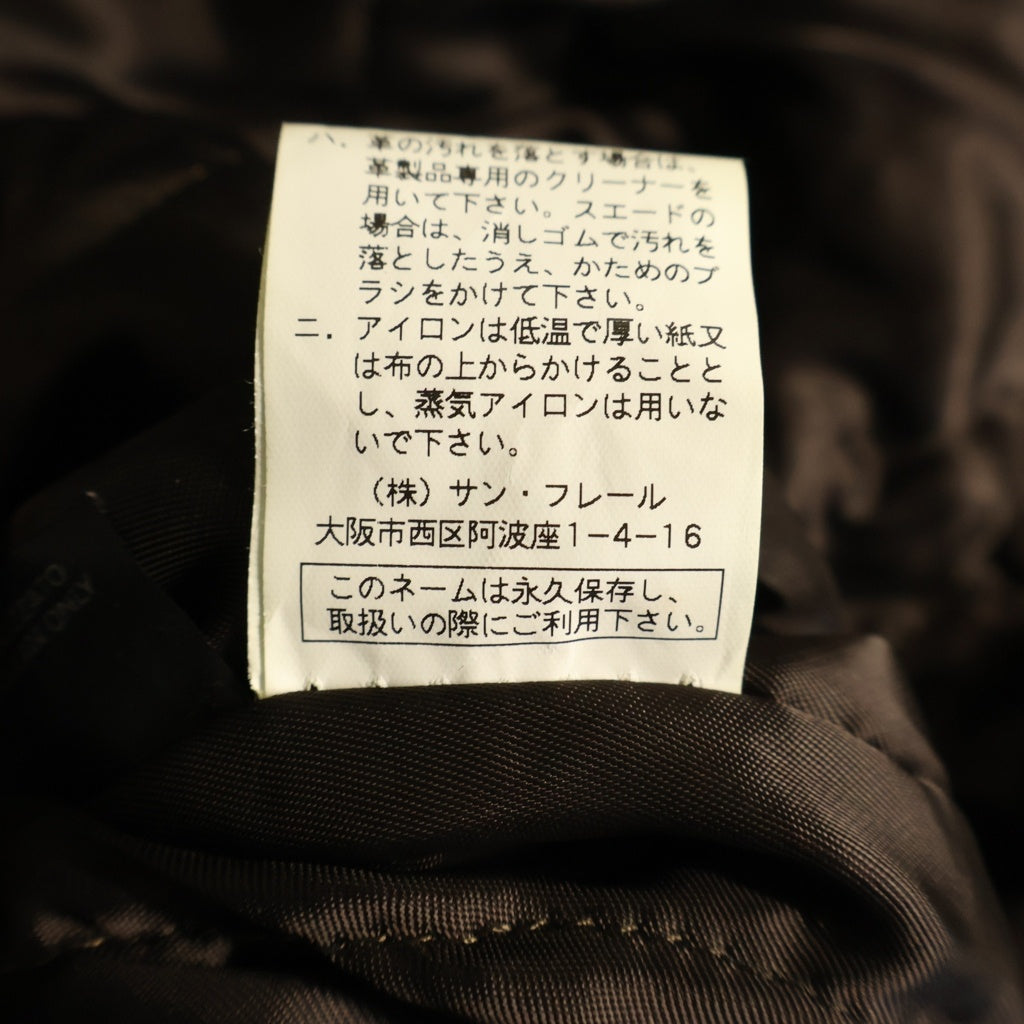 ハ．革の汚れを落とす場合は、
革製品専用のクリーナーを
用いて下さい。スエードの
場合は、消しゴムで汚れを
落としたうえ、かためのブ
ラシをかけて下さい。
ニ．アイロンは低温で厚い紙又
は布の上からかけることと
し、蒸気アイロンは用いな
いで下さい。
（株）サン・フレール
大阪市西区阿波座1−4−16
このネームは永久保存し、
取扱いの際にご利用下さい。